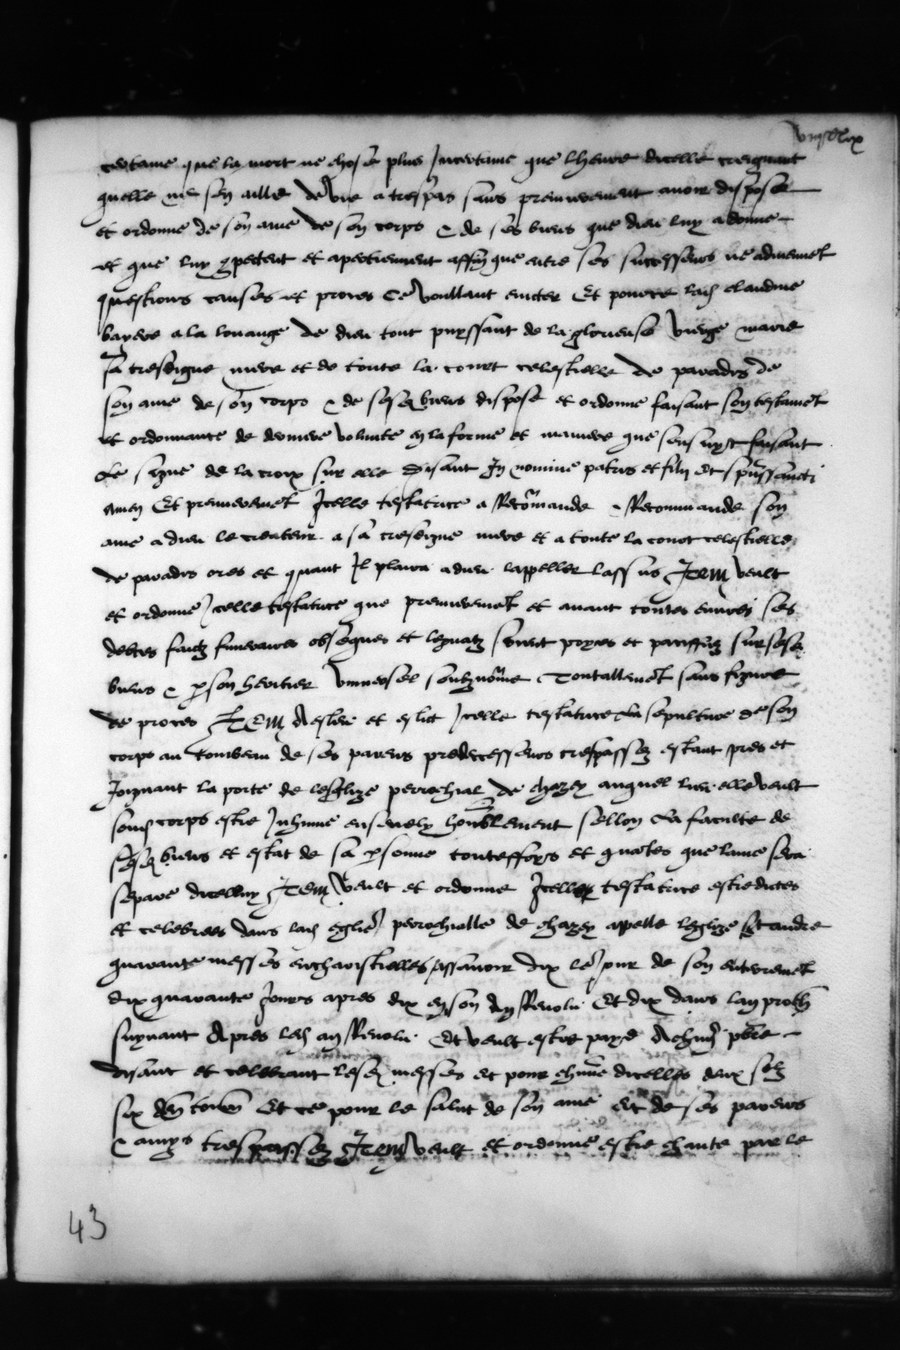 certaine que la mort ne chose plus Incertaine que lheure dicelle craignant
quelle ne sen aille de vie a trespas sans premierement avoir dispose
et ordonne de son ame de son corps & de ses biens que dieu luy a donne
et que luy competent et apertiennent affin que entre ses successeurs ne adviennet
questions causes et proces Ce voullant eviter Et pource lad claudine
bayere a la louange de dieu tout puyssant de la glorieuse vierge marie
sa tresdigne mere et de toute la court celestielle de paradis de
son ame de son corps & de sesd biens dispose et ordonne faisant son testamet
et ordonnance de derniere volunte en la forme et maniere que sensuyt faisant
Le signe de la croix sur elle Disant In nomine patris et filii et spus sancti
amen Et premieremet Icelle testatrice a Recomande & Recommande son
ame a dieu le createur a sa tresdigne mere et a toute la court celestielle
de paradis ores et quant Il plaira a dieu lappeller lassus Item veult
et ordonne Icelle testatrice que premieremet et avant toutes euvres ses
debtes faictz funeraires obseques et legatz soient poyees et paiffiez sur sesd
biens & p son heritier universel soubznome Toutallemet sans figure
de proces Item A eslire et eslit Icelle testatrice La sepulture de son
corps au tombeau de ses parens predecesseurs trespassez estant pres et
Joignant la porte de lesglize perrochial de chazey auquel lieu elle veult
sond corps estre Inhume ensevely honorablement sellon La faculte de
sesd biens et estat de sa psonne touteffoys et quates que lame sera
separe dicelluy Item veult et ordonne Icelle testatrice estre dictes
et celebrees dans lad eglise perrochialle de chazey appelle leglize St andre
quarante messes eucharistielles assavoir dix le Jour de son enterremet
dix quarante Jours apres dix en son an Revolu Et dix dans lan proch
suyvant Apres led an Revolu Et veult estre paye A chun pbre
disant et celebrant lesd messes et pour chune dicelles deux solz
six ds tourn Et ce pour le salut de son ame et de ses parens
& amys trespassez Item veult et ordonne estre chante par le
43